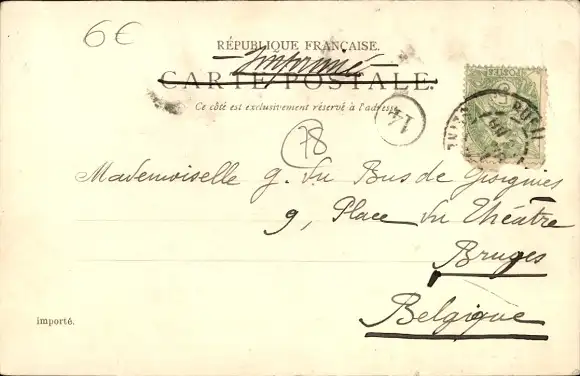 6€
RÉPUBLIQUE FRANÇAISE.
Imprimé
CARTE POSTALE.
Ce côté est exclusivement réservé à l'adresse
78
Mademoiselle G. du Bus de Gisignies
9, Place du Théâtre
Bruges
Belgique
importé.